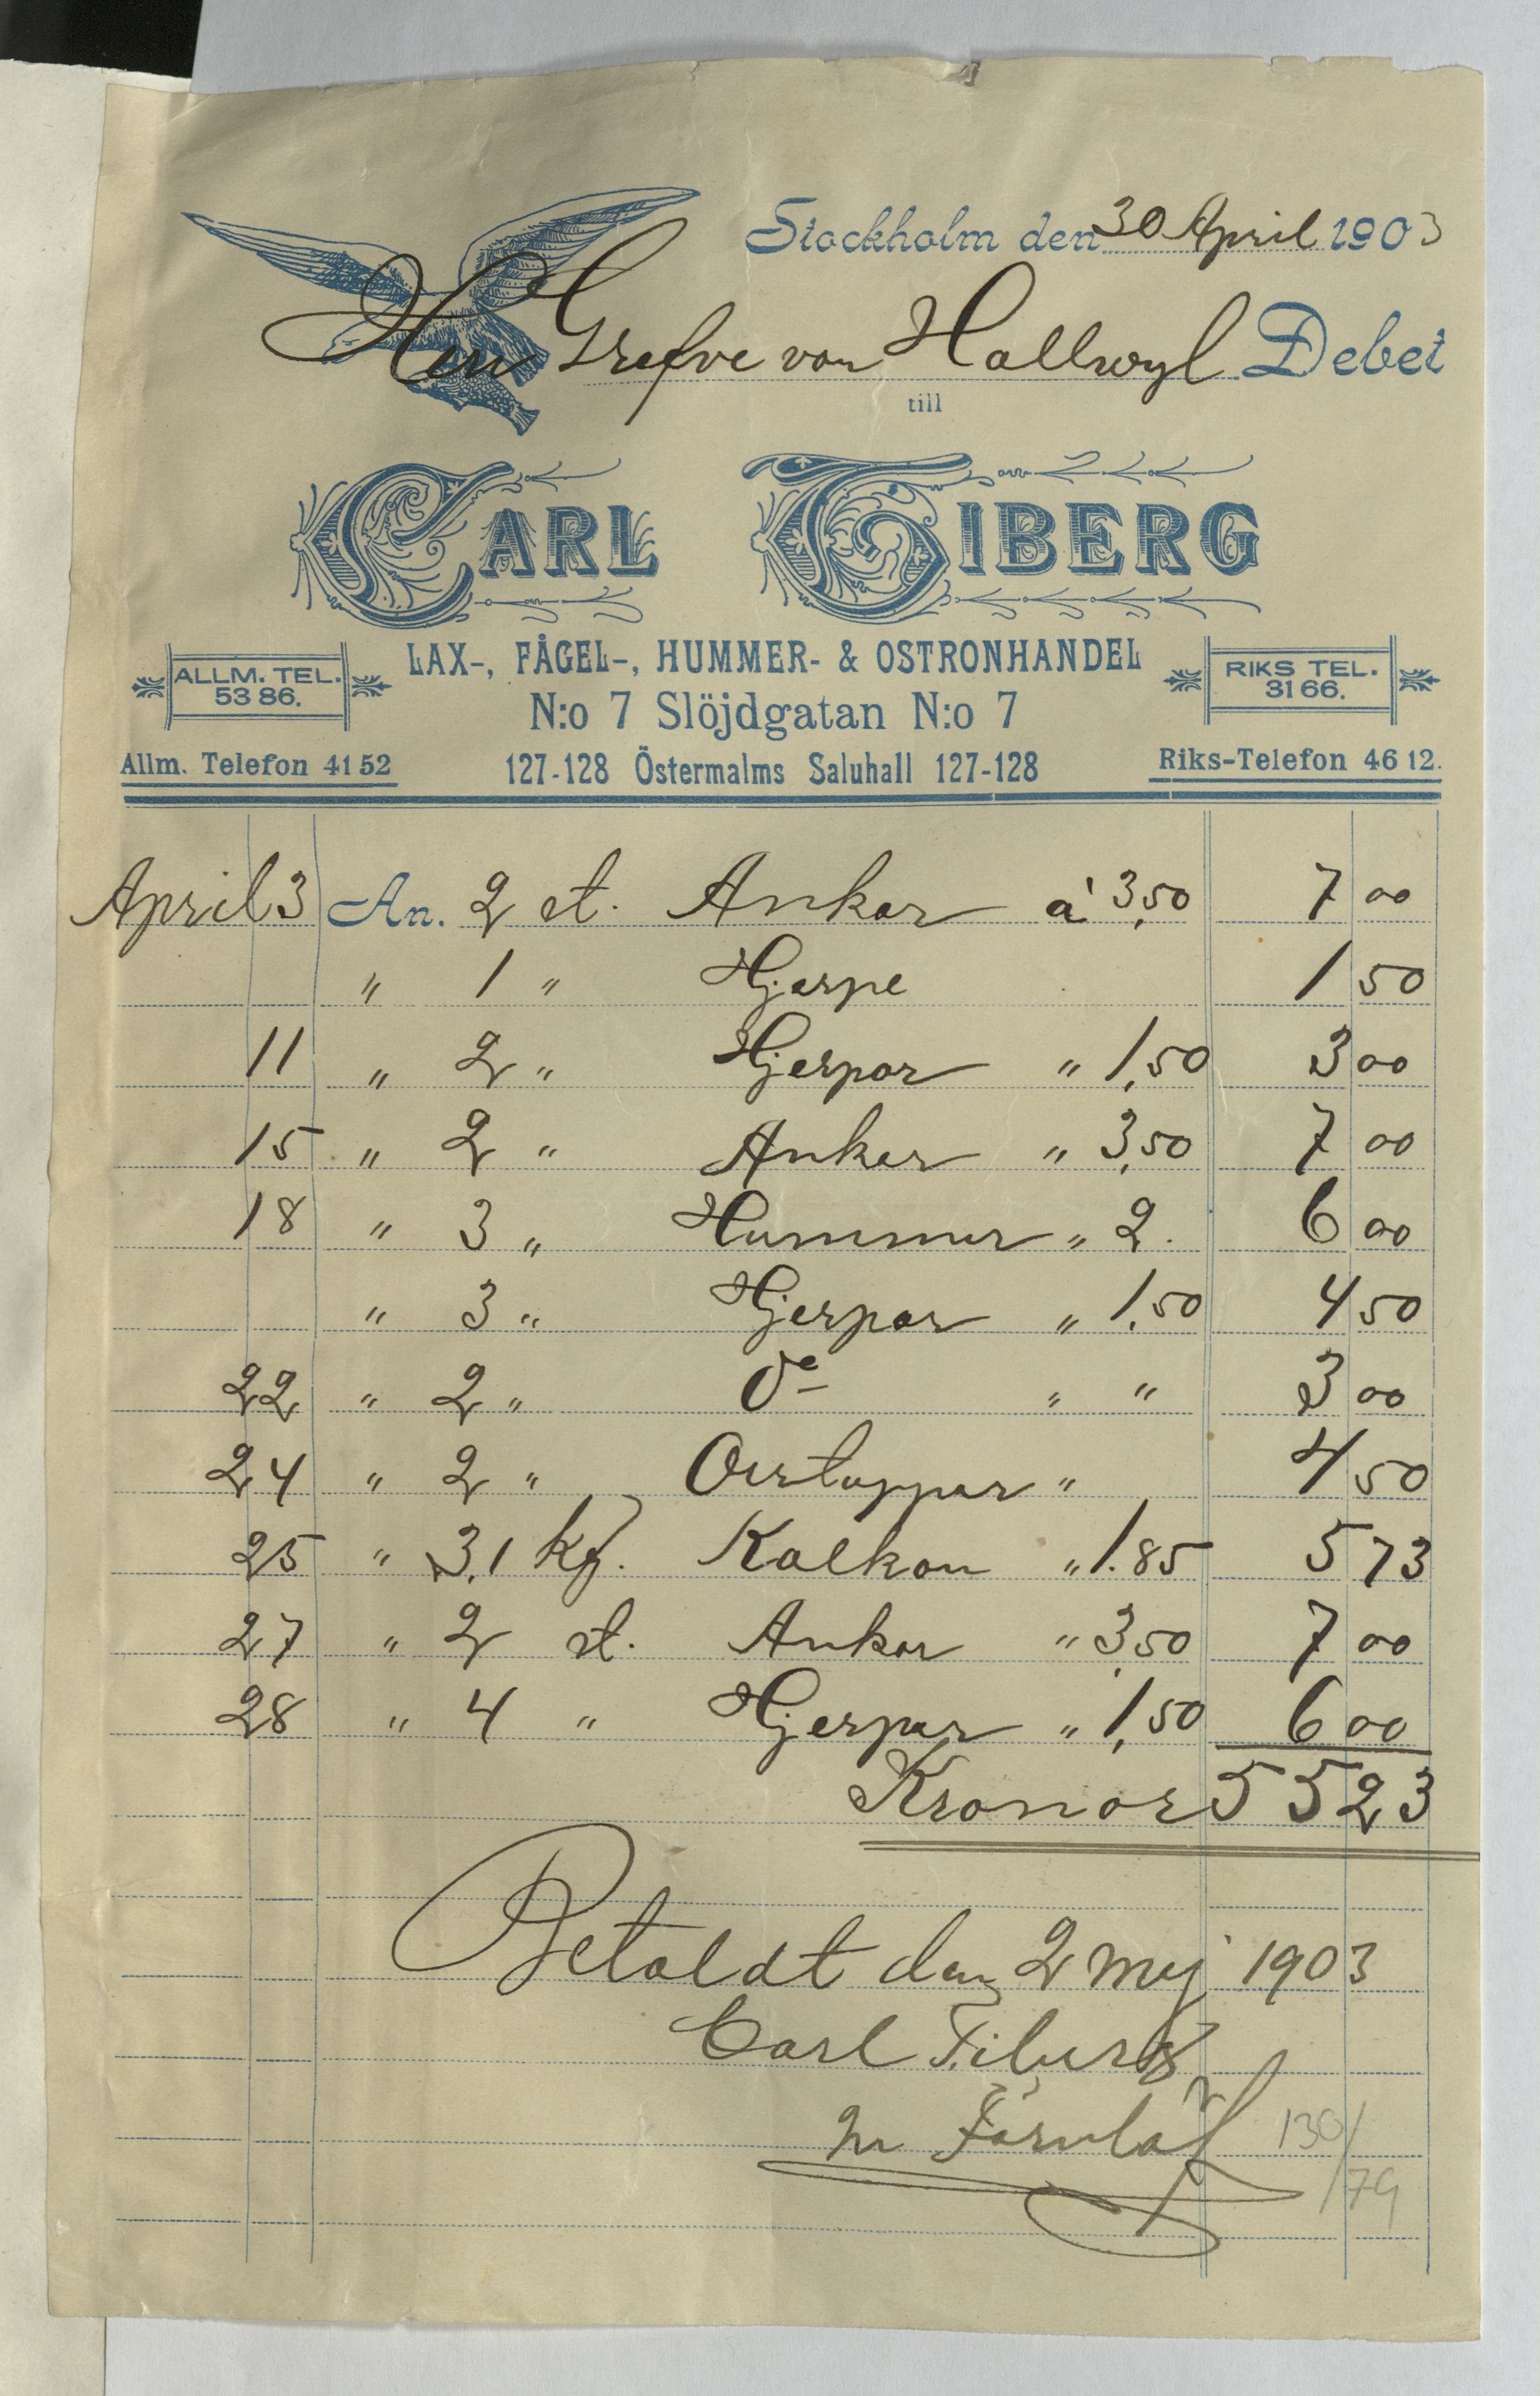 Stockholm den 30 April 1903
Herr Grefve von Hallwyl Debet
till
CARL TIBERG
LAX-, FÅGEL-, HUMMER- & OSTRONHANDEL
ALLM. TEL. 53 86.
RIKS TEL. 31 66.
N:o 7 Slöjdgatan N:o 7
Allm. Telefon 41 52 127-128 Östermalms Saluhall 127-128 Riks-Telefon 46 12.
April 3 An. 2 st. Ankor à 3,50 7 00
" 1 " Hjerpe 1 50
11 " 2 " Hjerpar " 1,50 3 00
15 " 2 " Ankor " 3,50 7 00
18 " 3 " Hummer " 2. 6 00
" 3 " Hjerpar " 1,50 4 50
22 " 2 " Do " " 3 00
24 " 2 " " 4 50
25 " 3,1 kg. Kalkon " 1.85 5 73
27 " 2 st. Ankor " 3,50 7 00
28 " 4 " Hjerpar " 1,50 6 00
Kronor 55 23
Betaldt den 2 Maj 1903
Carl Tiberg
130/
/79